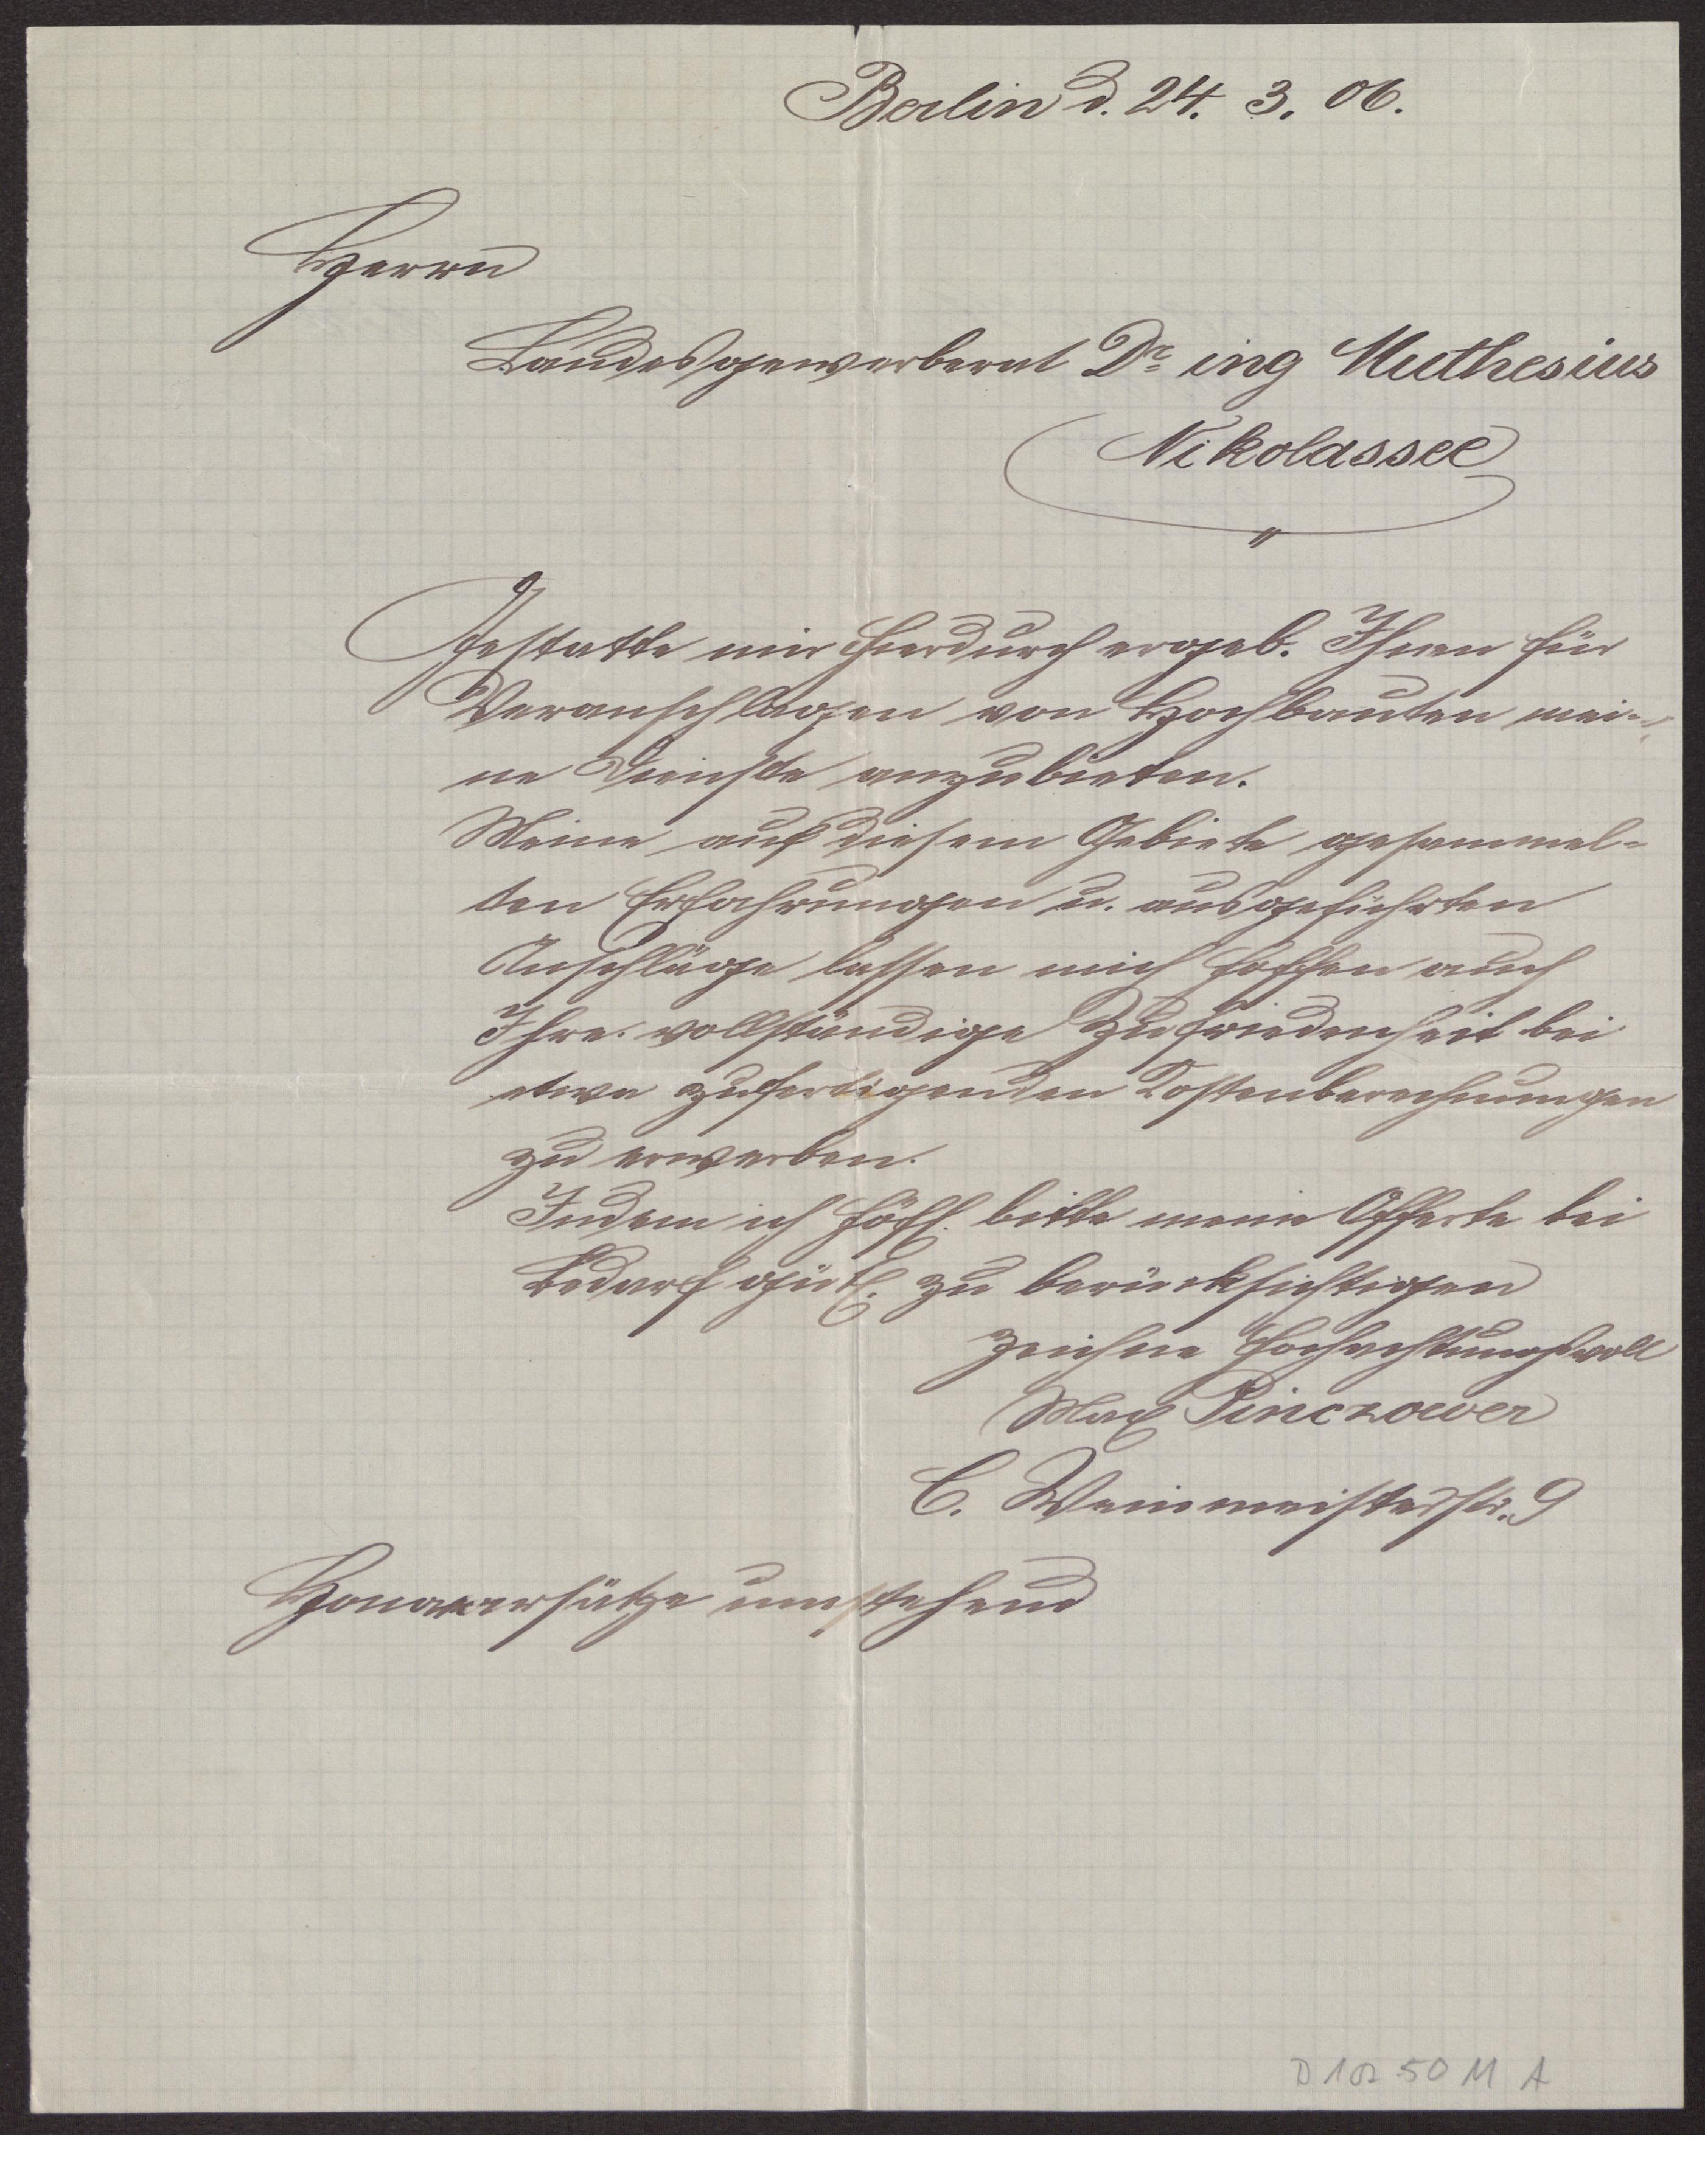 Berlin d. 24. 3. 06.
Herrn
Landesgewerberat Dr. ing Muthesius
Nikolassee
Gestatte mir hierdurch ergeb. Ihnen für
Veranschlagen von Hochbauten mei-
ne Dienste anzubieten.
Meine auf diesem Gebiete gesammel-
ten Erfahrungen u. ausgeführten
Anschläge lassen mich hoffen auch
Ihre vollständige Zufriedenheit bei
etwa zufertigenden Kostenberechnungen
zu erwerben.
Indem ich höfl. bitte meine Offerte bei
Bedarf gütl. zu berücksichtigen
zeichne hochachtungsvoll
Max Pinczower
C. Weinmeisterstr. 9
Honorarsätze umstehend
D 102 50 M A